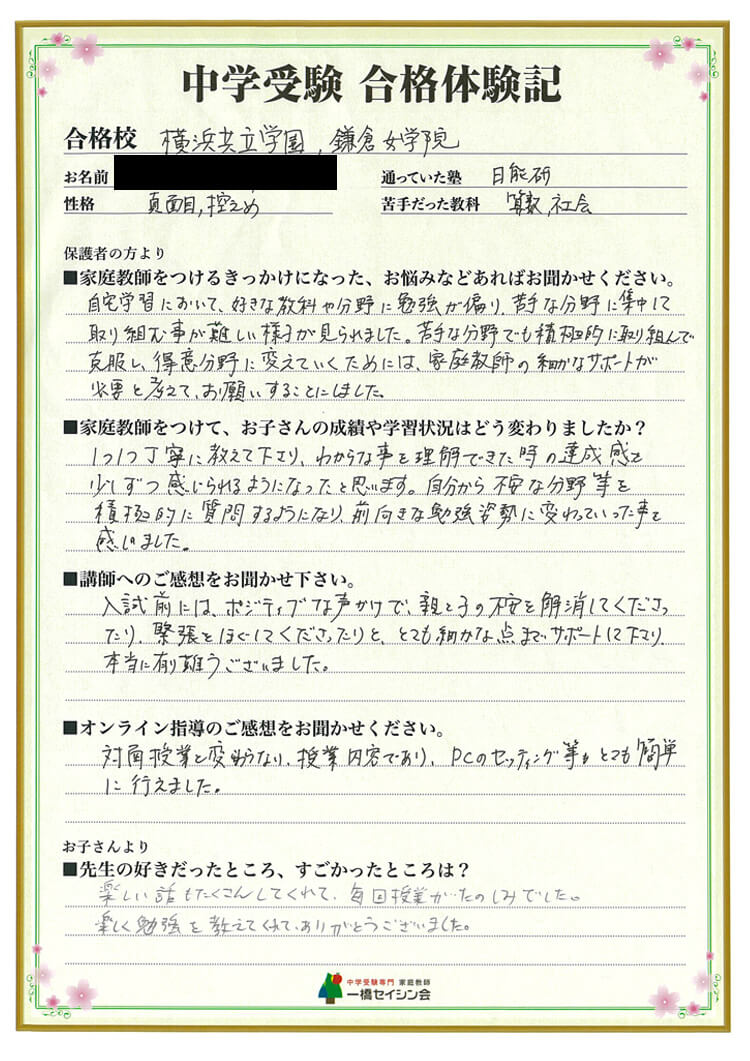 中学受験 合格体験記
合格校 横浜共立学園, 鎌倉女学院
お名前
通っていた塾 日能研
性格 真面目, 控えめ
苦手だった教科 算数, 社会
保護者の方より
■家庭教師をつけるきっかけになった、お悩みなどあればお聞かせください。
自宅学習において、好きな教科や分野に勉強が偏り、苦手な分野に集中して
取り組む事が難しい様子が見られました。苦手な分野でも積極的に取り組んで
克服し、得意分野に変えていくためには、家庭教師の細かなサポートが
必要と考えて、お願いすることにしました。
■家庭教師をつけて、お子さんの成績や学習状況はどう変わりましたか？
1つ1つ丁寧に教えて下さり、わからな事を理解できた時の達成感を
少しずつ感じられるようになったと思います。自分から不安な分野等を
積極的に質問するようになり、前向きな勉強姿勢に変わっていった事を
感じました。
■講師へのご感想をお聞かせ下さい。
入試前には、ポジティブな声かけで、親と子の不安を解消してくださっ
たり、緊張をほぐしてくださったりと、とても細かな点までサポートして下さり、
本当に有難うございました。
■オンライン指導のご感想をお聞かせください。
対面授業と変わらない、授業内容であり、PCのセッティング等もとても簡単
に行えました。
お子さんより
■先生の好きだったところ、すごかったところは？
楽しい話もたくさんしてくれて、毎回授業がたのしみでした。
楽しく勉強を教えてくれて、ありがとうございました。
中学受験専門 家庭教師
一橋セイシン会